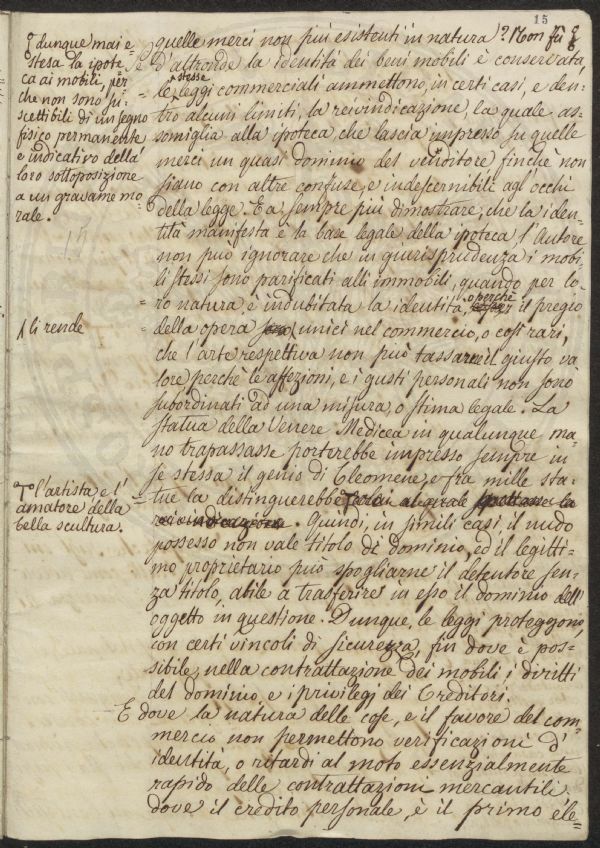 15
quelle merci non più esistenti in natura? Non fù
D'altronde la identità dei beni mobili è conservata,
le stesse leggi commerciali ammettono, in certi casi, e den=
tro alcuni limiti, la reivindicazione, la quale as=
somiglia alla ipoteca, che lascia impresso su quelle
merci un quasi dominio del venditore finchè non
siano con altre confuse, e indescernibili agl'occhi
della legge. E a sempre più dimostrare, che la iden=
tità manifesta è la base legale della ipoteca, l'Autore
non può ignorare che in giurisprudenza i mobi=
li stessi sono parificati alli immobili, quando per lo=
ro natura è indubitata la identità, o perchè il pregio
della opera unici nel commercio, o così rari,
che l'arte respettiva non può tassarne il giusto va
lore perchè le affezioni, e i gusti personali non sono
subordinati ad una misura, o stima legale. La
statua della Venere Medicea in qualunque ma=
no trapassasse porterebbe impresso sempre in
se stessa il genio di Cleomene, e fra mille sta=
tue la distinguerebbe
reivindicazione. Quindi, in simili casi il nudo
possesso non vale titolo di dominio, ed il legitti=
mo proprietario può spogliarne il detentore sen=
za titolo, abile a trasferire in esso il dominio dell'
oggetto in questione. Dunque, le leggi proteggono,
con certi vincoli di sicurezza, fin dove è pos=
sibile, nella contrattazione dei mobili i diritti
del dominio, e i privilegj dei Creditori.
E dove la natura delle cose, e il favore del com=
mercio non permettono verificazioni d'
identità, o ritardi al moto essenzialmente
rapido delle contrattazioni mercantili
dove il credito personale, è il primo ele=
dunque mai e=
stesa la ipote
ca ai mobili, per
che non sono su=
scettibili di un segno
fisico permanente
e indicativo della
loro sottoposizione
a un gravame mo
rale.
15
li rende
l'artista, e l'
amatore della
bella scultura.